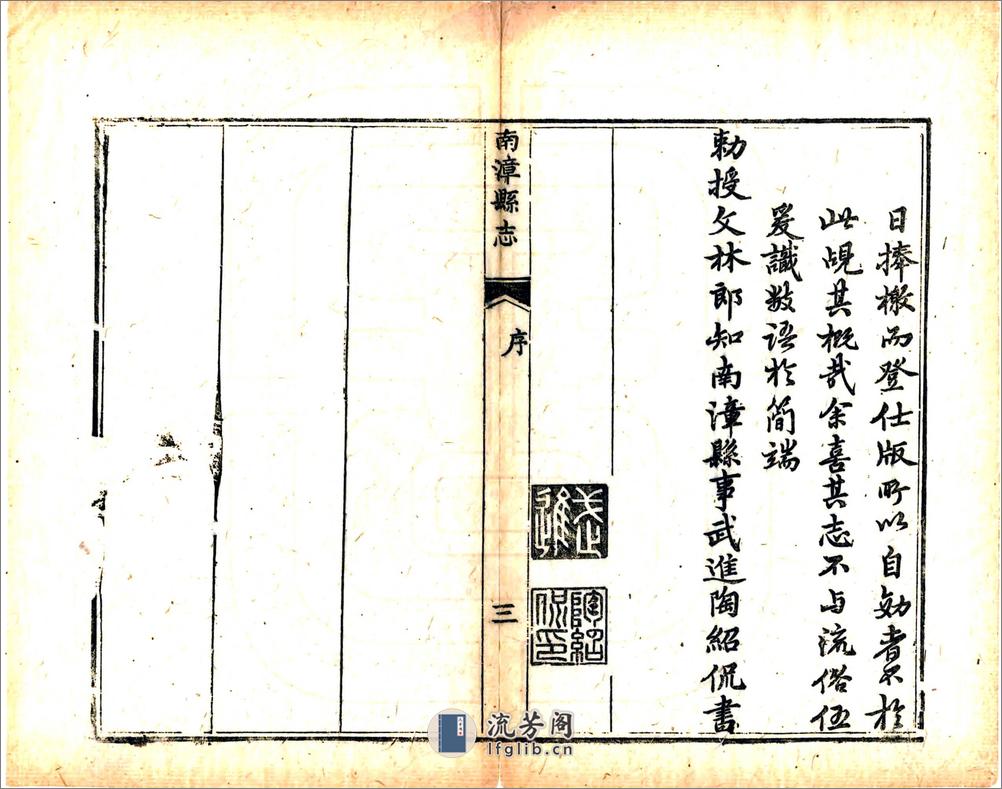 日捧檄而登仕版所以自効者不於
此覘其概哉余喜其志不与流俗伍
爰識数语於简端
勅授文林郎知南漳縣事武進陶紹侃書
武進
陶紹侃印
南漳縣志
序
三
流芳阁
lfglib.cn